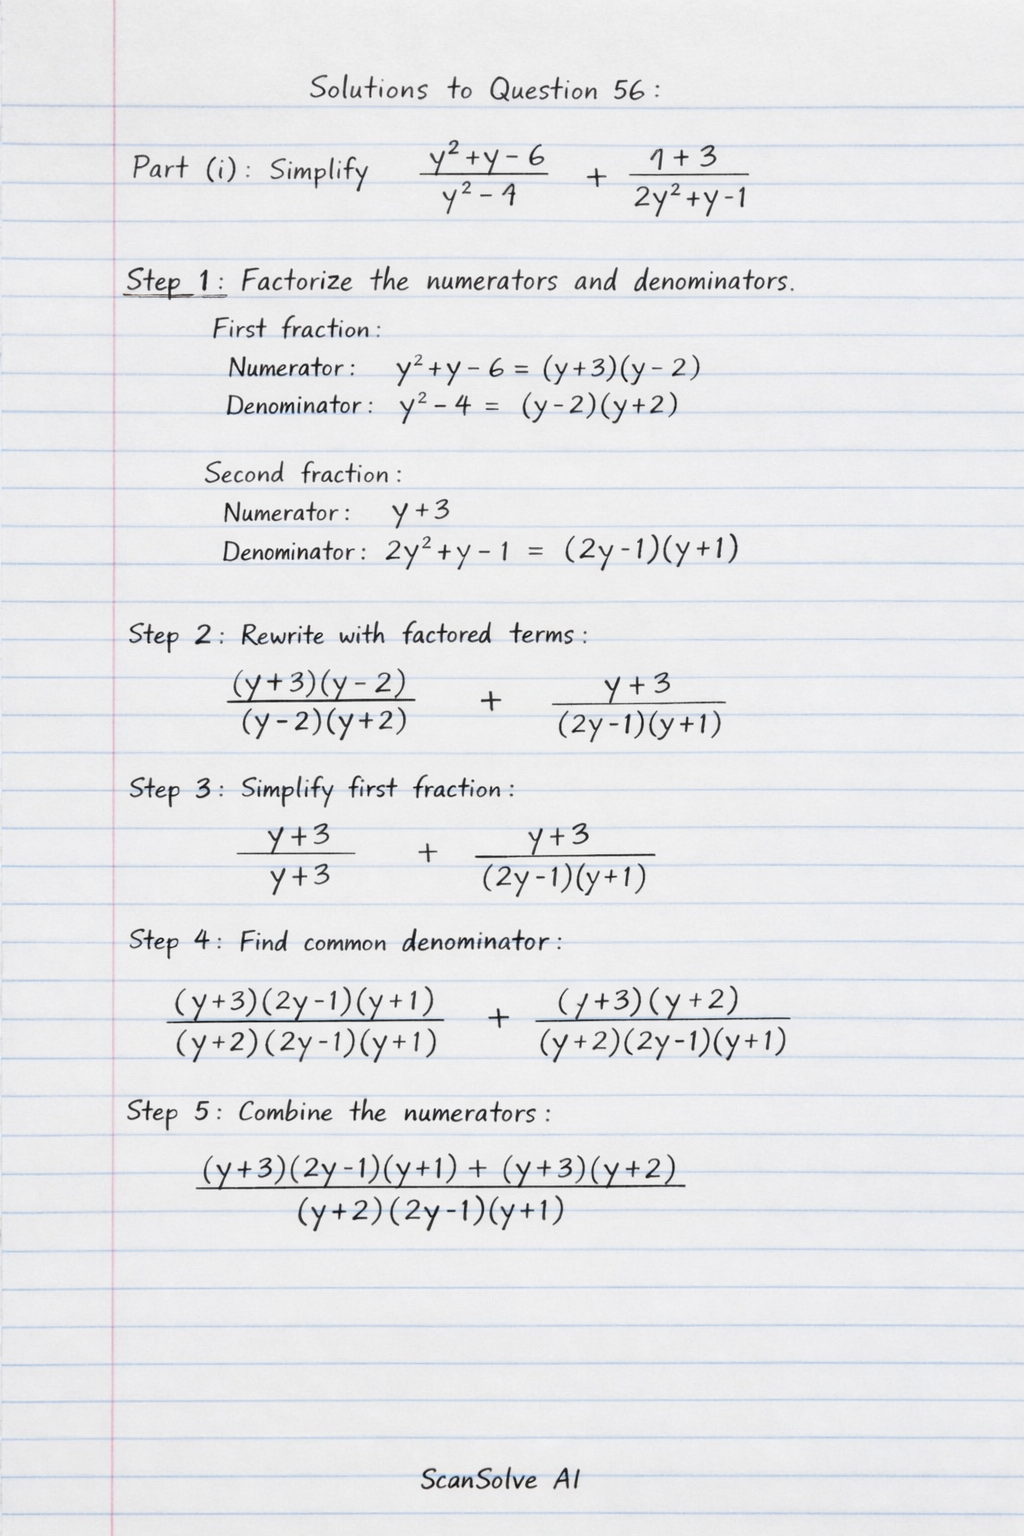 Solutions to Question 56:
Part (i): Simplify (y²+y-6)/(y²-4) + (1+3)/(2y²+y-1)
Step 1: Factorize the numerators and denominators.
First fraction:
Numerator: y²+y-6 = (y+3)(y-2)
Denominator: y²-4 = (y-2)(y+2)
Second fraction:
Numerator: y+3
Denominator: 2y²+y-1 = (2y-1)(y+1)
Step 2: Rewrite with factored terms:
(y+3)(y-2)/(y-2)(y+2) + y+3/(2y-1)(y+1)
Step 3: Simplify first fraction:
y+3/y+3 + y+3/(2y-1)(y+1)
Step 4: Find common denominator:
(y+3)(2y-1)(y+1)/(y+2)(2y-1)(y+1) + (y+3)(y+2)/(y+2)(2y-1)(y+1)
Step 5: Combine the numerators:
(y+3)(2y-1)(y+1) + (y+3)(y+2)/(y+2)(2y-1)(y+1)
ScanSolve AI